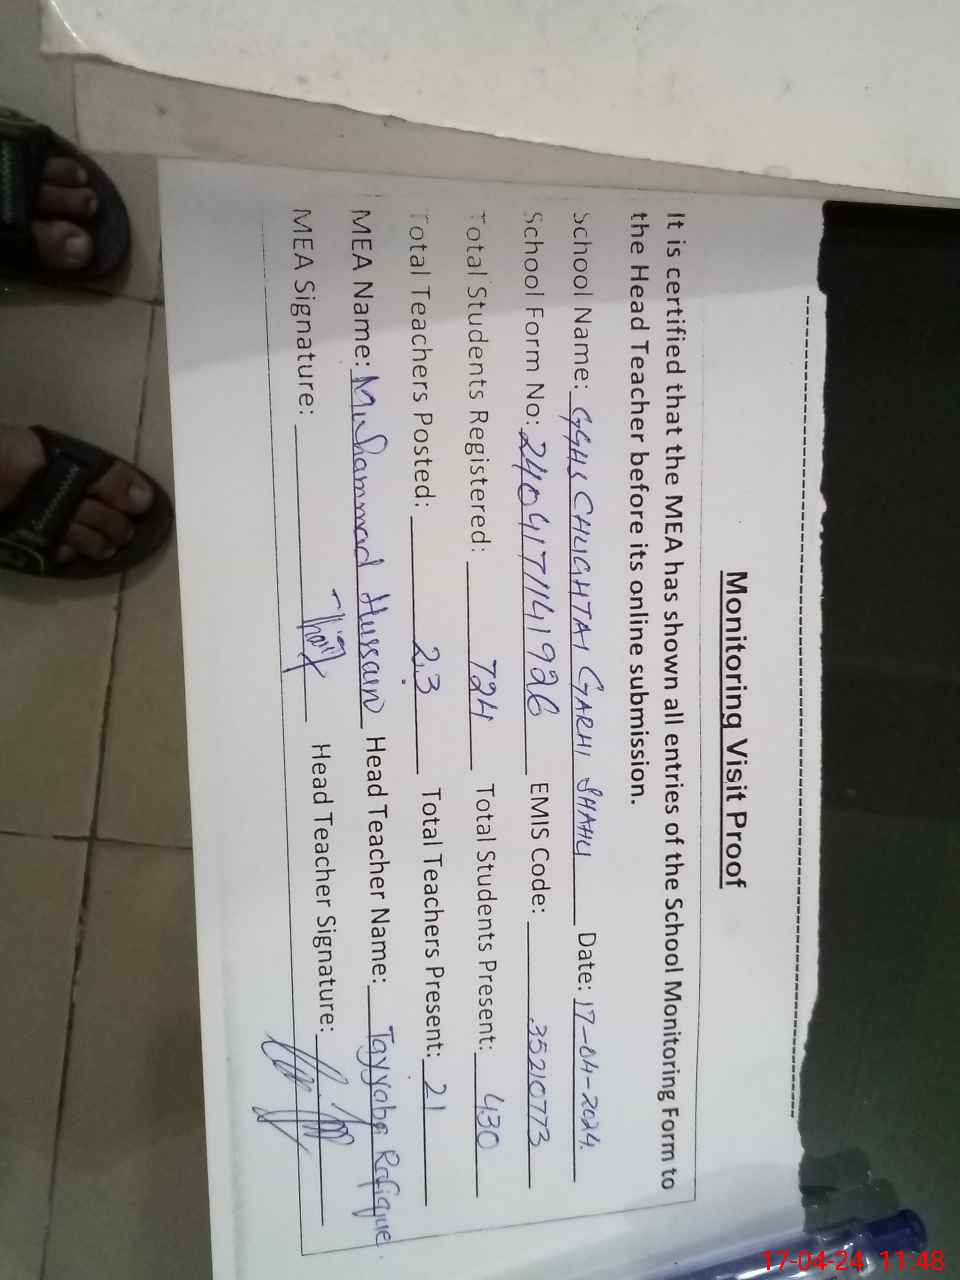 Monitoring Visit Proof
It is certified that the MEA has shown all entries of the School Monitoring Form to
the Head Teacher before its online submission.
School Name: GGHS CHUGHTAI GARHI SHAHU Date: 17-04-2024
School Form No: 2404171141926 EMIS Code: 35210773
Total Students Registered: 724 Total Students Present: 430
Total Teachers Posted: 23 Total Teachers Present: 21
MEA Name: Muhammad Hussain Head Teacher Name: Tayyaba Rafique
MEA Signature: Head Teacher Signature:
17-04-24 11:48